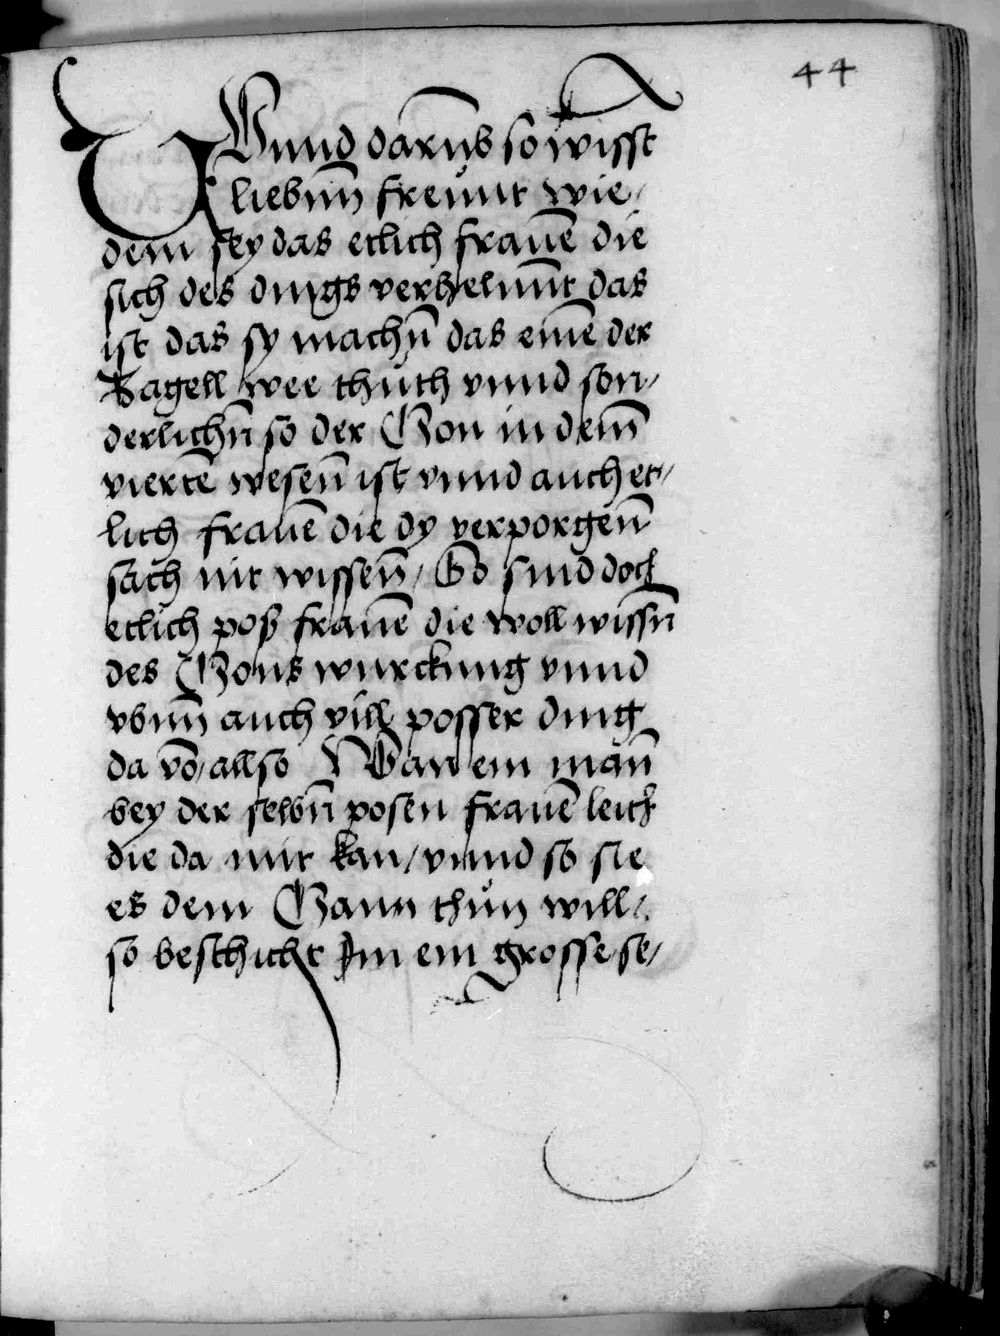 44
Vnnd darūb so wisst
liebn̄n freŭnt wie /
dem sey das etlich frauē die
sich des dings verhelnn̄t das
ist das sy machn̄ das eine der
Zagell wee thŭth vnnd son /
derlichn̄ so der Mon in dem̄
viertē wesen̄ ist vnnd auch et /
lich frauē die dy verporgen̄
sach nit wissen̄ / So sind doch
etlich poß frauē die woll wissn̄
des Mons wurckung vnnd
vbnn̄ auch vill posser ding
da vō / allso Wan ein man̄
bey der selbn̄ posen frauē leith
die da mit kan / vnnd so sie
es dem Mann thŭn will /.
so beschicht Im ein grosse se /